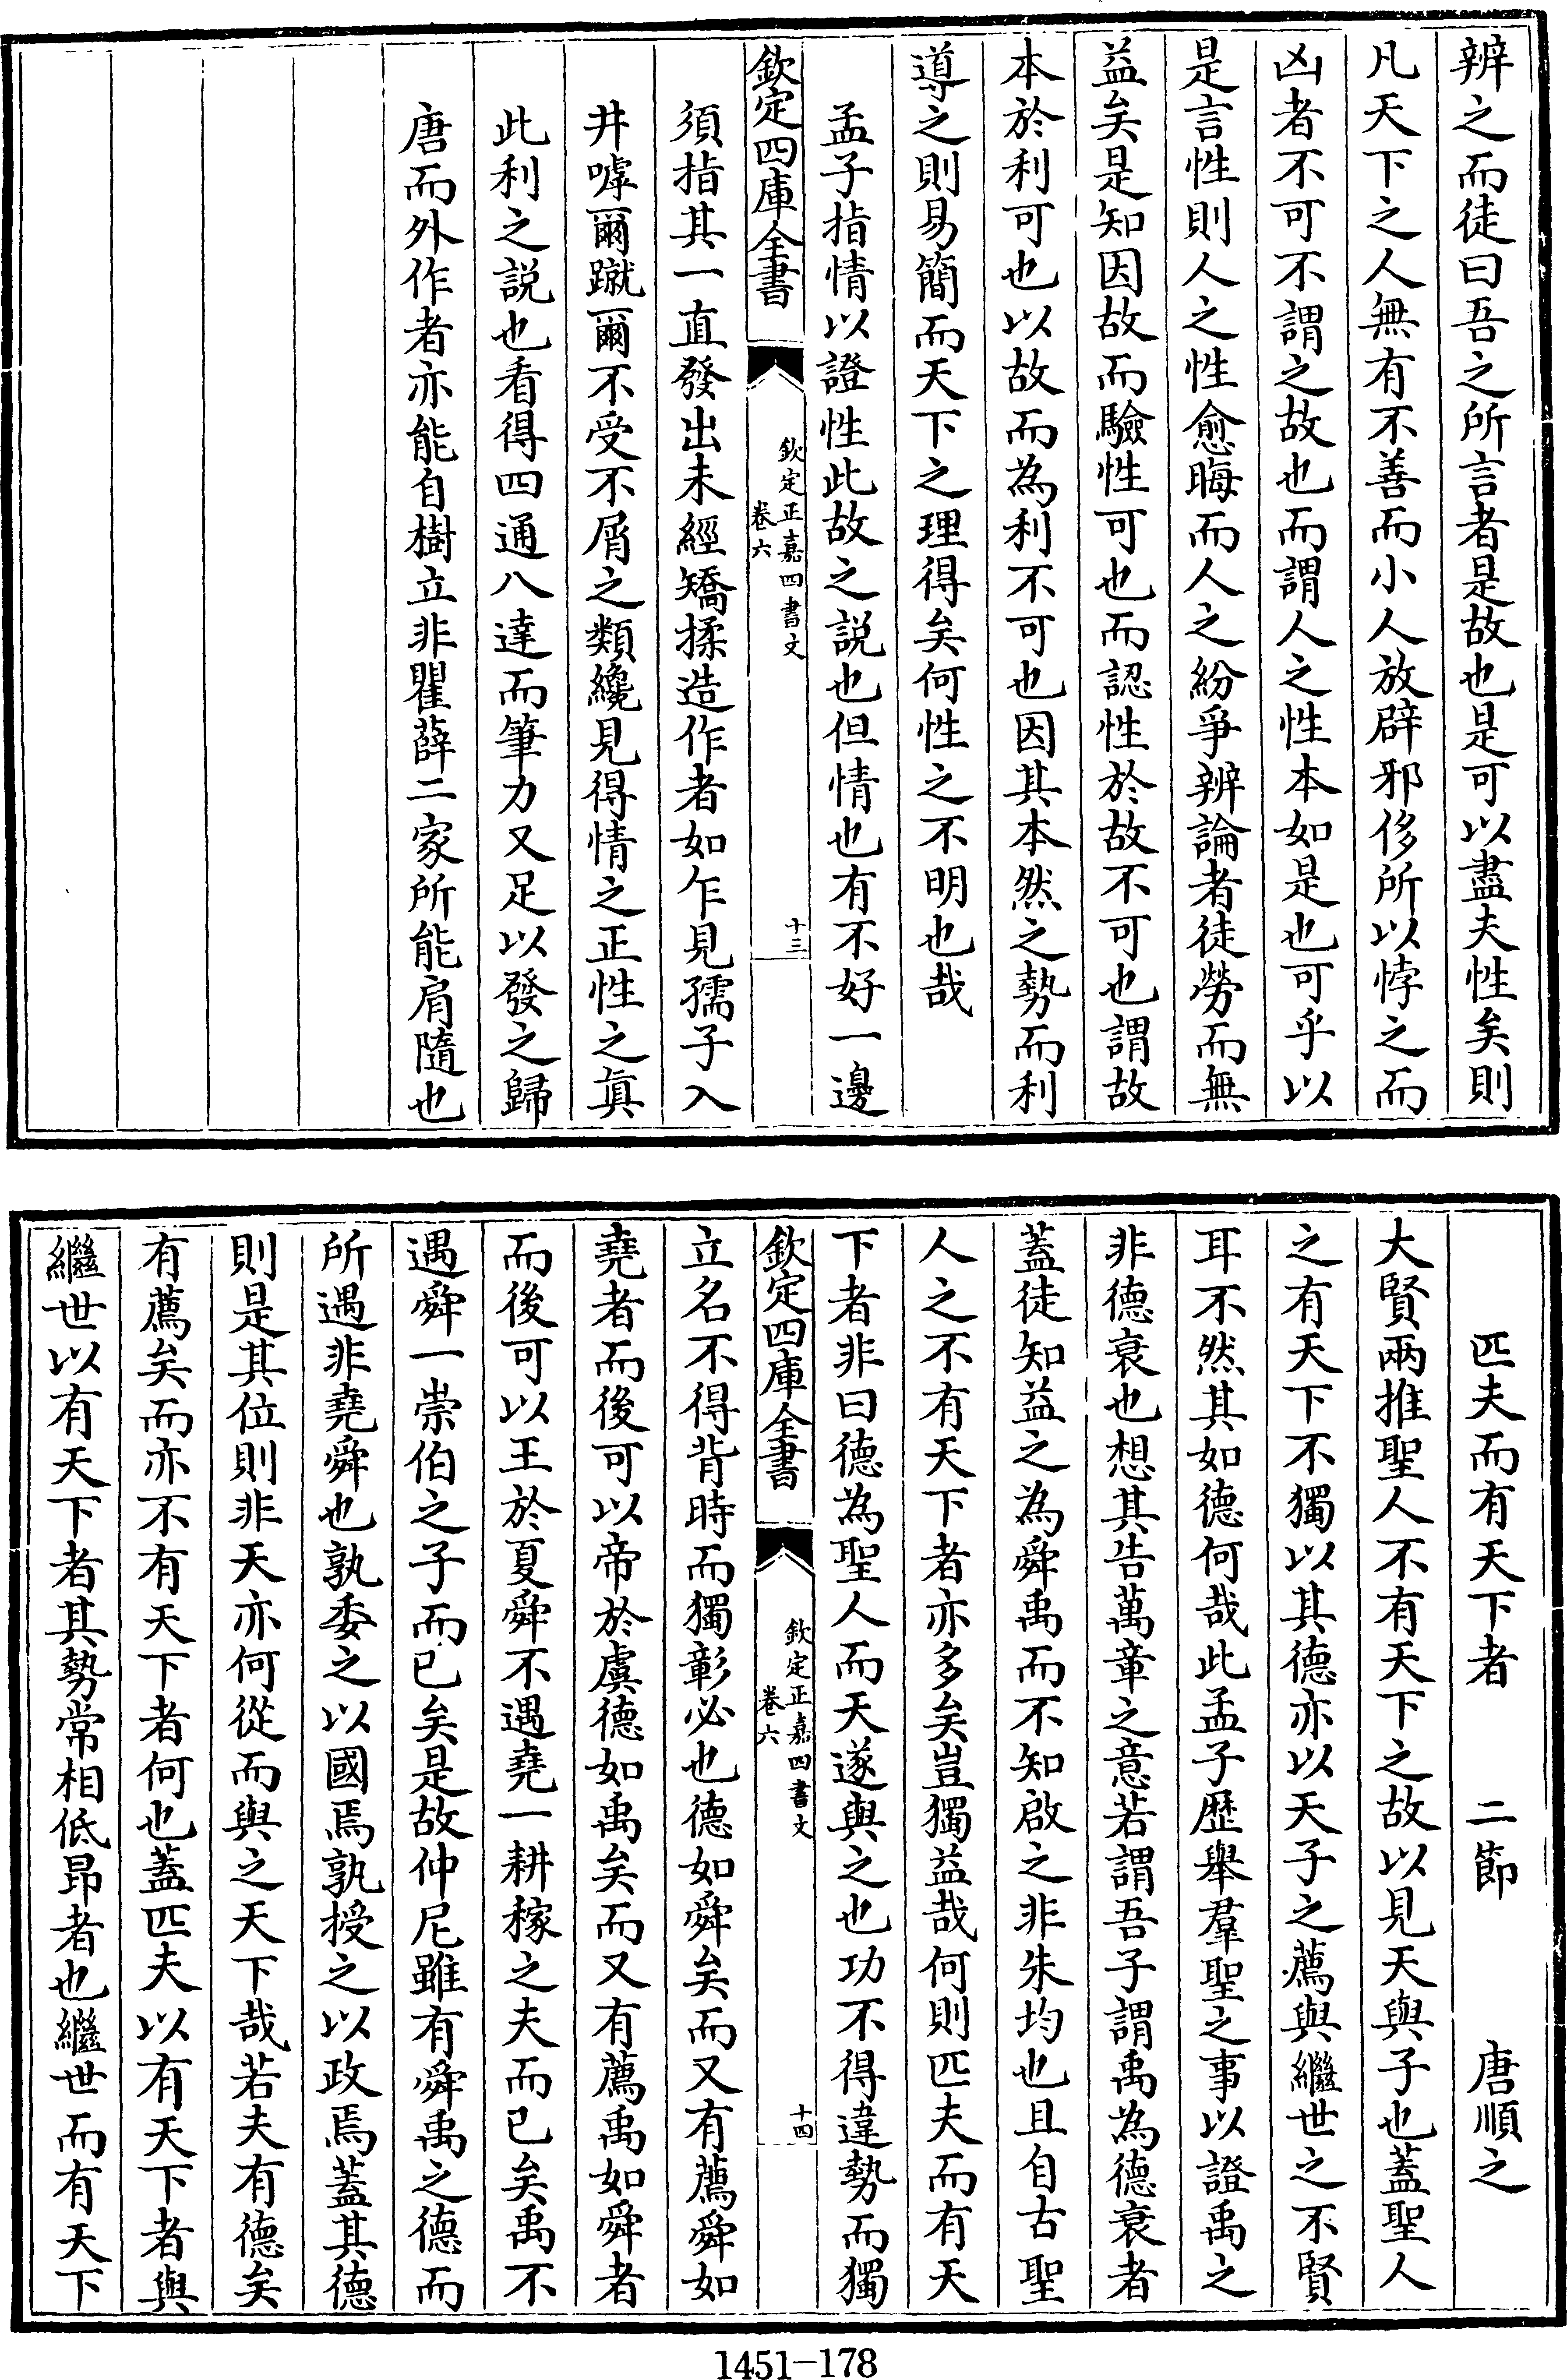 辨之而徒曰吾之所言者是故也是可以盡夫性矣則
凡天下之人無有不善而小人放辟邪侈所以悖之而
凶者不可不謂之故也而謂人之性本如是也可乎以
是言性則人之性愈晦而人之紛爭辨論者徒勞而無
益矣是知因故而驗性可也而認性於故不可也謂故
本於利可也以故而為利不可也因其本然之勢而利
導之則易簡而天下之理得矣何性之不明也哉
孟子指情以證性此故之説也但情也有不好一邊
欽定四庫全書
欽定正嘉四書文
卷六
十三
須指其一直發出未經矯揉造作者如乍見孺子入
井嘑爾蹴爾不受不屑之類纔見得情之正性之真
此利之説也看得四通八達而筆力又足以發之歸
唐而外作者亦能自樹立非瞿薛二家所能肩隨也
匹夫而有天下者 二節 唐順之
大賢兩推聖人不有天下之故以見天與子也蓋聖人
之有天下不獨以其德亦以天子之薦與繼世之不賢
耳不然其如德何哉此孟子歴舉羣聖之事以證禹之
非德衰也想其告萬章之意若謂吾子謂禹為德衰者
蓋徒知益之為舜禹而不知啟之非朱均也且自古聖
人之不有天下者亦多矣豈獨益哉何則匹夫而有天
下者非曰德為聖人而天遂與之也功不得違勢而獨
欽定四庫全書
欽定正嘉四書文
卷六
十四
立名不得背時而獨彰必也德如舜矣而又有薦舜如
堯者而後可以帝於虞德如禹矣而又有薦禹如舜者
而後可以王於夏舜不遇堯一耕稼之夫而已矣禹不
遇舜一崇伯之子而已矣是故仲尼雖有舜禹之德而
所遇非堯舜也孰委之以國焉孰授之以政焉蓋其德
則是其位則非天亦何從而與之天下哉若夫有德矣
有薦矣而亦不有天下者何也蓋匹夫以有天下者與
繼世以有天下者其勢常相低昂者也繼世而有天下
1451－178